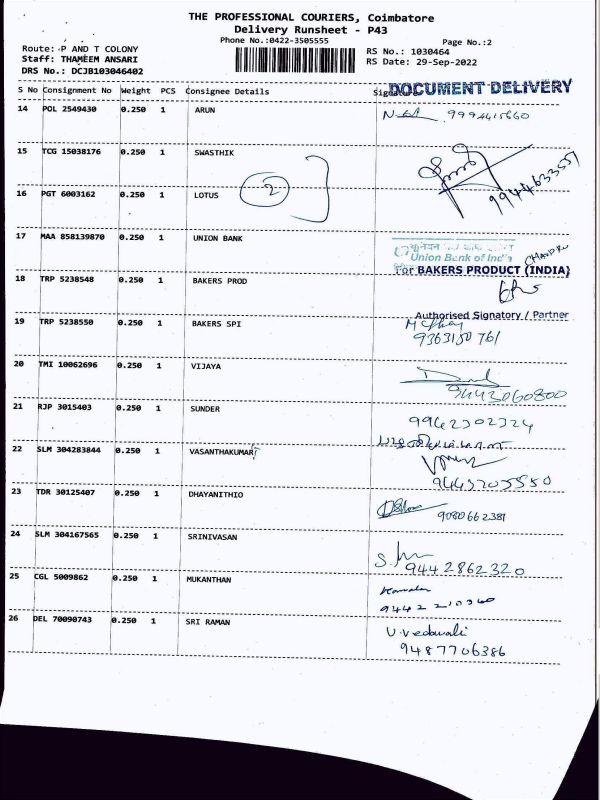 THE PROFESSIONAL COURIERS, Coimbatore
Delivery Runsheet - P43
Phone No.:0422-3505555
Page No.:2
Route: P AND T COLONY
RS No.: 1030464
Staff: THAMEEM ANSARI
RS Date: 29-Sep-2022
DRS No.: DCJB103046402
S No Consignment No Weight PCS Consignee Details Signature
DOCUMENT DELIVERY
14 POL 2549430 0.250 1 ARUN
9994415660
15 TCG 15038176 0.250 1 SWASTHIK
9944633557
16 PGT 6003162 0.250 1 LOTUS
2
17 MAA 858139870 0.250 1 UNION BANK
Union Bank of India
For BAKERS PRODUCT (INDIA)
18 TRP 5238548 0.250 1 BAKERS PROD
Authorised Signatory / Partner
19 TRP 5238550 0.250 1 BAKERS SPI
9363150761
20 TMI 10062696 0.250 1 VIJAYA
9443060800
21 RJP 3015403 0.250 1 SUNDER
9962302324
22 SLM 304283844 0.250 1 VASANTHAKUMAR
9443205550
23 TDR 30125407 0.250 1 DHAYANITHIO
9080662381
24 SLM 304167565 0.250 1 SRINIVASAN
9442862320
25 CGL 5009862 0.250 1 MUKANTHAN
9442210360
26 DEL 70090743 0.250 1 SRI RAMAN
V.Vedavalli
9487706386